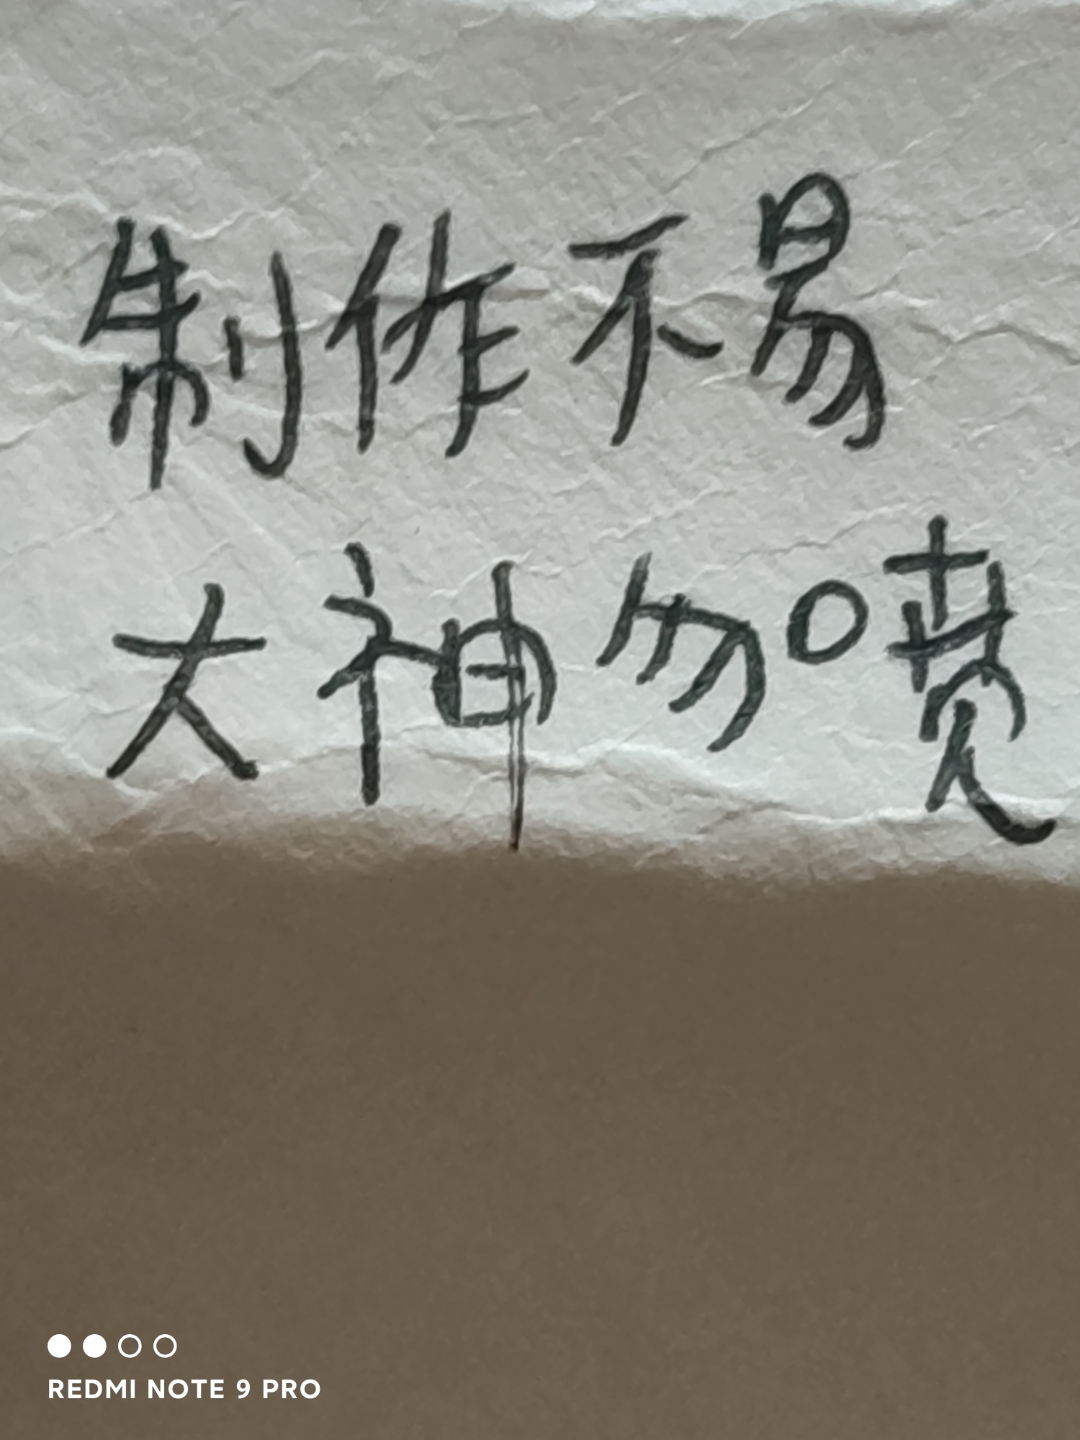 制作不易
大神勿喷
REDMI NOTE 9 PRO